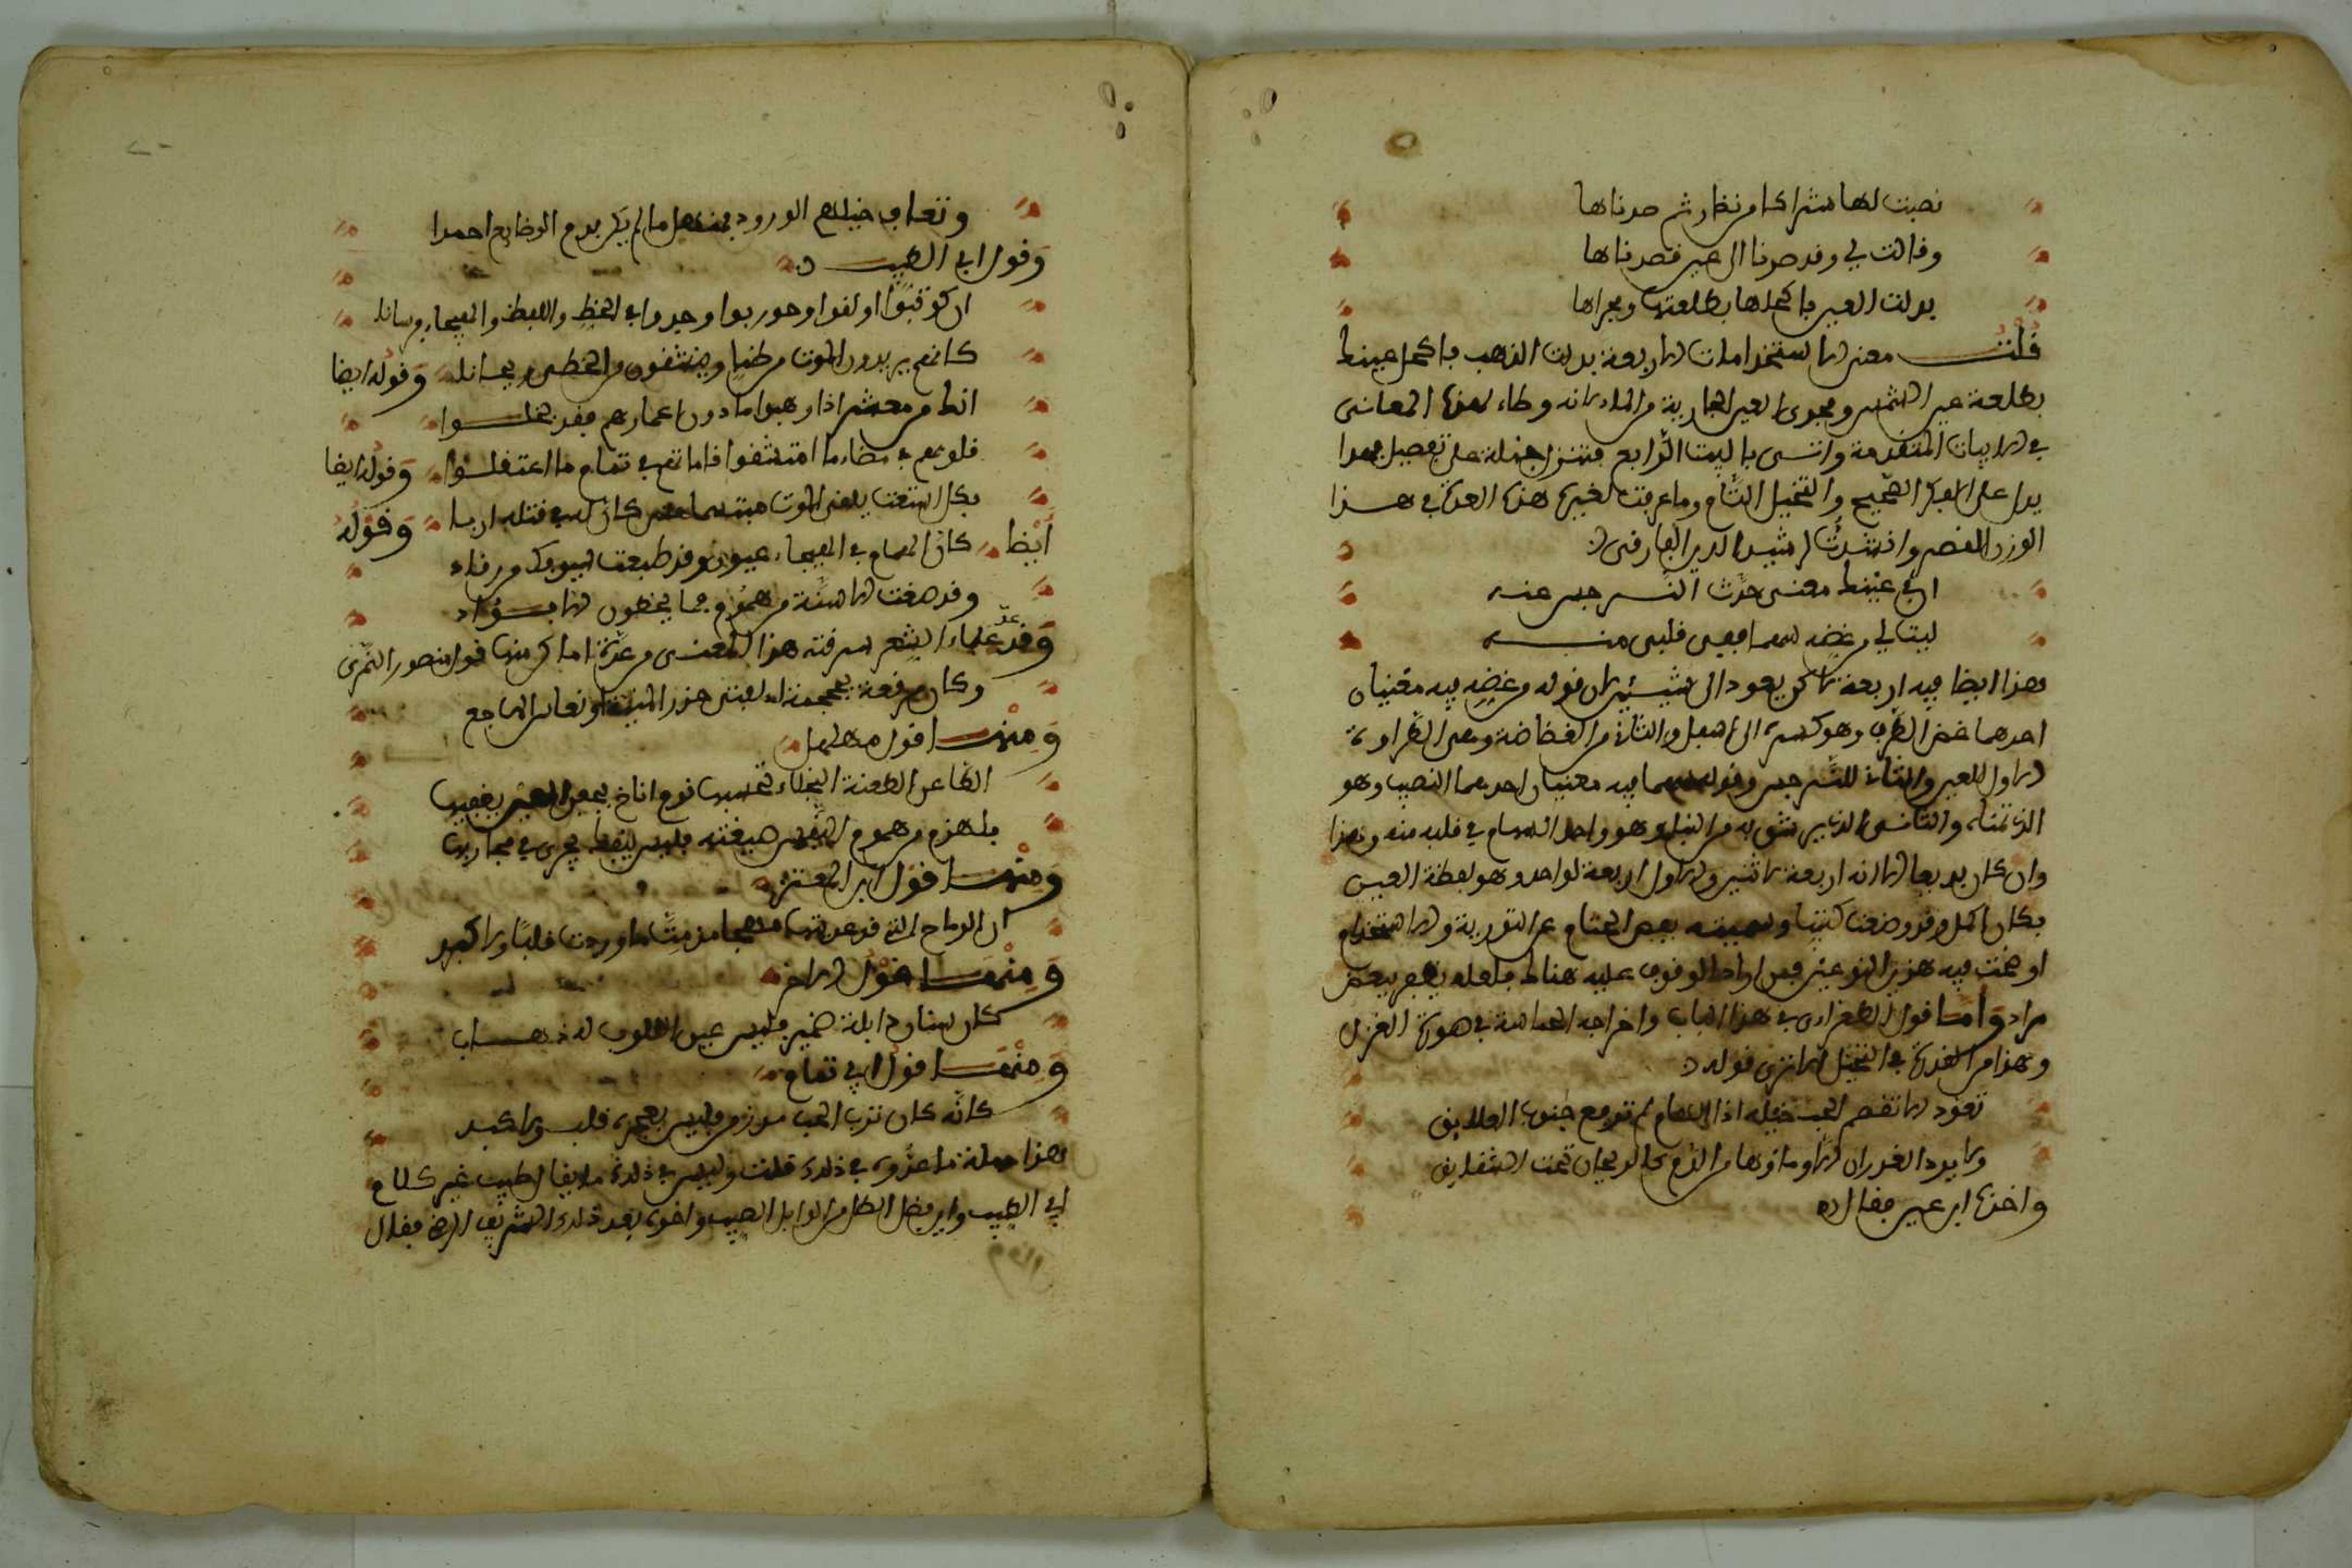 نصبت لها شراكا من نظار ثم صدناها
وقالت لي وقد صرنا الى عين قصدناها
بذلت العين باكحلها بطلعتها ومجراها
قلت معنى الاستخدامات الاربعة بذلت الذهب باكحل عينك
بطلعة عين الشمس ومجرى العين الجارية من الماء لانه وطاء لهذا المعاني
في الابيات المتقدمة واتى بالبيت الرابع فتنزل جملة على تفصيل وهذا
يدل على الفكر الصحيح والتخيل التام وما عرفت لغيره هذه العدة في هذا
الوزن القصير وانشدت لرشيد الدين الفارقي
ان في عينيك معنى حدث النرجس عنه
ليت لي من غضه سهما ففي قلبي منه
فهذا ايضا فيه اربعة لاكن يعود الى شيئين لان قوله من غضه فيه معنيان
احدهما غض الطرف وهو كسره الى اسفل والثاني من الغضاضة وهي الطراوة
الاول للعين والثاني للنرجس وقوله سهما فيه معنيان احدهما النصيب وهو
الذي تمناه والثاني الذي يرشق به من النبل وهو واحد السهام في قلبه منه وهذا
وان كان بديعا الا انه اربعة لاثنين والاول اربعة لواحد وهو لفظة العين
فكان اكمل وقد وضعت كتابا وسميته بفض الختام عن التورية والاستخدام
اوضحت فيه هذين النوعين فمن اراد الوقوف عليه هناك فلعله يظفر ببعض
مراد واما قول الطغرائي في هذا الباب واخراجه الحماسة في صورة الغزل
وهذا من القدرة في التخيل الا ترى قوله
تعود لا تقضم الحب خيله اذا الهام لم ترفع جنوب العلايق
ولا يرد الغدران الا وماؤها من الدم كالريحان تحت الشقايق
واخذه ابن عنين فقال
وتعاف خيلهم الورود بمنهل ما لم يكن بدم الوقايع احمرا
وقول ابي الطيب
ان كوتبوا او لقوا او حوربوا وجدوا في الخط واللفظ والهيجاء فرسانا
كانهم يردون الموت من ظما وينشقون من الخطي ريحانا وقوله ايضا
انك من معشر اذا وهبوا ما دون اعمارهم فقد بخلوا
قلوبهم في مضاء ما امتشقوا قاماتهم في تمام ما اعتقلوا وقوله ايضا
بكل اشعث يلقى الموت مبتسما حتى كان له في قتله اربا وقوله
ايضا كان الهام في الهيجاء عيون وقد طبعت سيوفك من رقاد
وقد صغت الاسنة من هموم فما يخطرن الا بفؤاد
وقد عد علماء الشعر سرقته هذا المعنى من عدة اماكن منها قول منصور النمري
ومنها قول مهلهل
الطاعن الطعنة النجلاء تحسبها نوم اناخ بجفن العين يغفيها
بلهذم من هموم النفس صيغته فليس ينفك يجري في مجاريها
ومنها قول ابن المعتز
ان الرماح التي غذيتها مهجا مذ مت ما وردت قلبا ولا كبد
ومنها قول الاخر
كان سنان ذابله ضمير فليس عن القلوب له ذهاب
ومنها قول ابي تمام
كانه كان ترب الحب مذ زمن فليس يعجزه قلب ولا كبد
فهذا جملة ما عدوه في ذلك قلت وليس في ذلك ما يفا الطيب غير كلام
ابي الطيب واين فضل الطل من الوابل الصيب واخذه بعد ذلك الشريف الرضي فقال